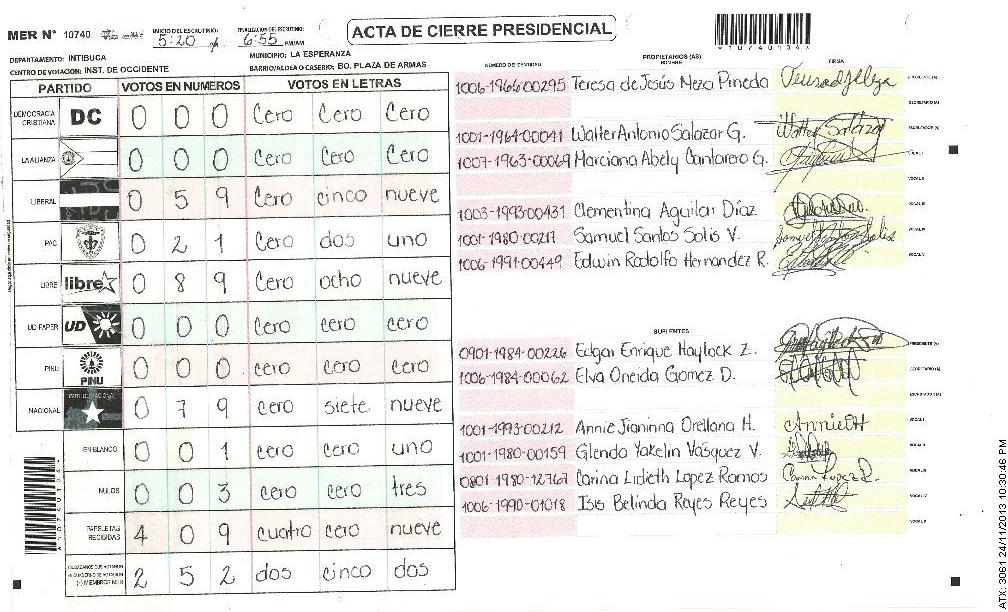 MER N° 10740 INICIO DEL ESCRUTINIO: 5:20 FINALIZACION ESCRUTINIO: 6:55 PM/AM ACTA DE CIERRE PRESIDENCIAL
DEPARTAMENTO: INTIBUCA MUNICIPIO: LA ESPERANZA
CENTRO DE VOTACION: INST. DE OCCIDENTE BARRIO/ALDEA O CASERIO: BO. PLAZA DE ARMAS
PARTIDO VOTOS EN NUMEROS VOTOS EN LETRAS
DEMOCRACIA CRISTIANA DC 0 0 0 Cero Cero Cero
LA ALIANZA 0 0 0 Cero Cero Cero
LIBERAL 0 5 9 Cero cinco nueve
PAC 0 2 1 Cero dos uno
LIBRE libre 0 8 9 Cero ocho nueve
UD FAPER UD 0 0 0 Cero cero cero
PINU PINU 0 0 0 cero cero cero
NACIONAL 0 7 9 cero siete nueve
EN BLANCO 0 0 1 cero cero uno
NULOS 0 0 3 cero cero tres
PAPELETAS RECIBIDAS 4 0 9 cuatro cero nueve
2 5 2 dos cinco dos
NUMERO DE IDENTIDAD PROPIETARIOS (AS) NOMBRE FIRMA
1006-1966-00295 Teresa de Jesús Meza Pineda
1001-1964-00041 Walter Antonio Salazar G. Walter Salazar
1007-1963-00069 Marciana Abely Cantarero G.
1003-1993-00431 Clementina Aguilar Díaz
1001-1980-00217 Samuel Santos Solis V.
1006-1991-00449 Edwin Rodolfo Hernandez R.
SUPLENTES
0901-1984-00226 Edgar Enrique Haylock Z.
1006-1984-00062 Elva Oneida Gomez D.
1001-1993-00212 Annie Jianinna Orellana H. Annie OH
1001-1980-00159 Glenda Yakelin Vásquez V.
0801-1980-12767 Carina Lidieth Lopez Ramos
1006-1990-01018 Isis Belinda Reyes Reyes
ATX: 3061 24/11/2013 10:30:46 PM